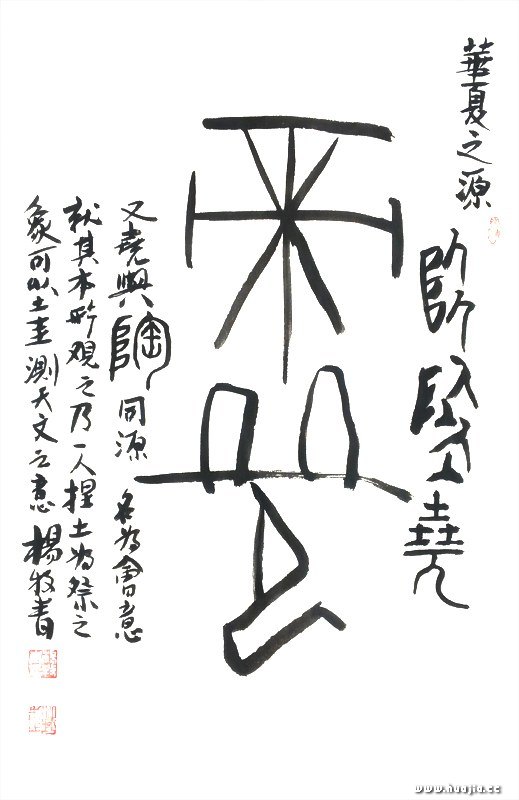 華夏之源
堯
帝堯
又堯與陶同源 名为會意
就其本形觀之乃一人捏土为祭之
象可以土圭測天文之意 楊牧青
www.huajia.cc